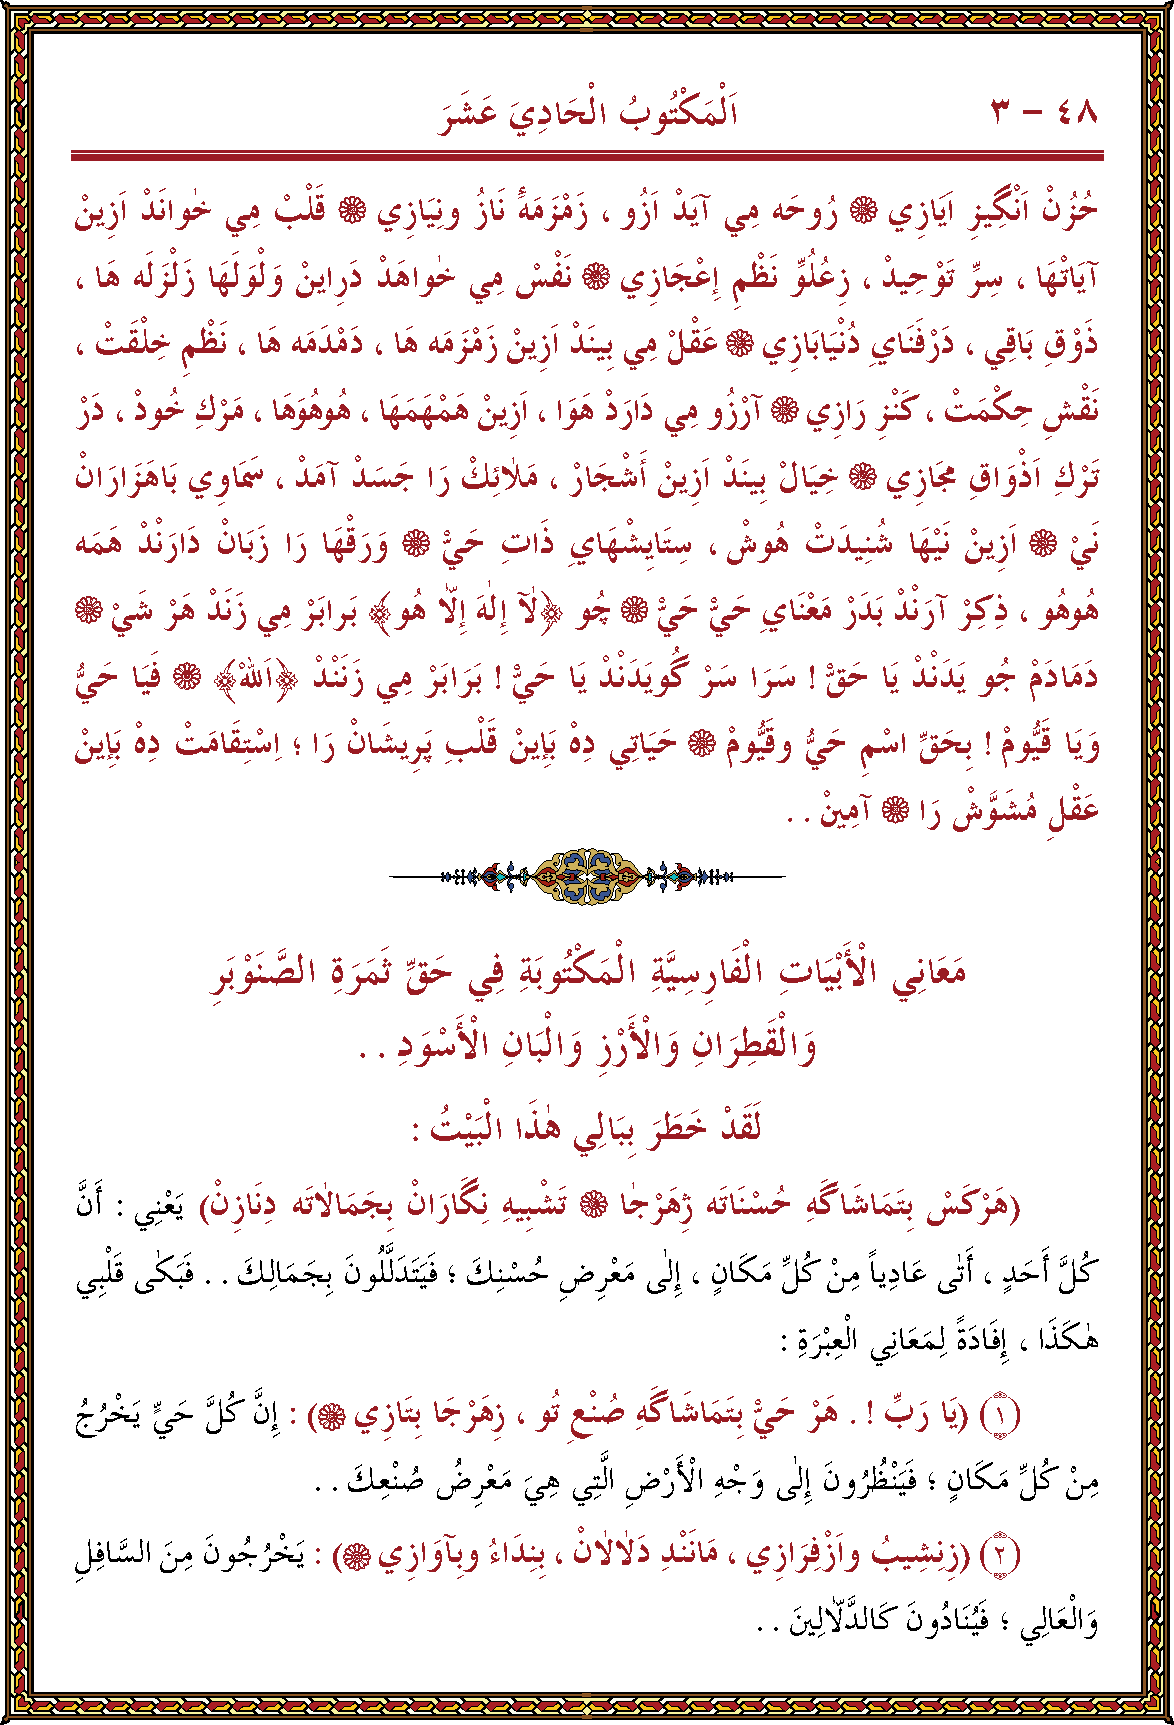 ٤٨ - ٣ اَلْمَكْتُوبُ الْحَادِيَ عَشَرَ
حُزُنْ اَنْگِيزِ اَيَازِي ۞ رُوحَه مِي آيَدْ اَزُو ، زَمْزَمَهٔ نَازُ ونِيَازِي ۞ قَلْبْ مِي خٰوانَدْ اَزِينْ
آيَاتْهَا ، سِرِّ تَوْحِيدْ ، زِعُلُوِّ نَظْمِ إِعْجَازِي ۞ نَفْسْ مِي خٰواهَدْ دَرِاينْ وَلْوَلَهَا زَلْزَلَه هَا ،
ذَوْقِ بَاقِي ، دَرْفَنَايِ دُنْيَابَازِي ۞ عَقْلْ مِي بِينَدْ اَزِينْ زَمْزَمَه هَا ، دَمْدَمَه هَا ، نَظْمِ خِلْقَتْ ،
نَقْشِ حِكْمَتْ ، كَنْزِ رَازِي ۞ آرْزُو مِي دَارَدْ هَوَا ، اَزِينْ هَمْهَمَهَا ، هُوهُوَهَا ، مَرْكِ خُودْ ، دَرْ
تَرْكِ اَذْوَاقِ مَجَازِي ۞ خِيَالْ بِينَدْ اَزِينْ أَشْجَارْ ، مَلٰائِكْ رَا جَسَدْ آمَدْ ، سَمَاوِي بَاهَزَارَانْ
نَيْ ۞ اَزِينْ نَيْهَا شُنِيدَتْ هُوشْ ، سِتَايِشْهَايِ ذَاتِ حَيْ ۞ وَرَقْهَا رَا زَبَانْ دَارَنْدْ هَمَه
هُوهُو ، ذِكِرْ آرَنْدْ بَدَرْ مَعْنَايِ حَيْ حَيْ ۞ چُو ﴿لٰآ إِلٰهَ إِلّٰا هُو﴾ بَرابَرْ مِي زَنَدْ هَرْ شَيْ ۞
دَمَادَمْ جُو يَدَنْدْ يَا حَقْ ! سَرَا سَرْ گُويَدَنْدْ يَا حَيْ ! بَرَابَرْ مِي زَنَنْدْ ﴿اَللّٰهْ﴾ ۞ فَيَا حَيُّ
وَيَا قَيُّومْ ! بِحَقِّ اسْمِ حَيُّ وقَيُّومْ ۞ حَيَاتِي دِهْ بَإِينْ قَلْبِ پَرِيشَانْ رَا ؛ اِسْتِقَامَتْ دِهْ بَإِينْ
عَقْلِ مُشَوَّشْ رَا ۞ آمِينْ . .
مَعَانِي الْأَبْيَاتِ الْفَارِسِيَّةِ الْمَكْتُوبَةِ فِي حَقِّ ثَمَرَةِ الصَّنَوْبَرِ
وَالْقَطِرَانِ وَالْأَرْزِ وَالْبَانِ الْأَسْوَدِ . .
لَقَدْ خَطَرَ بِبَالِي هٰذَا الْبَيْتُ :
(هَرْكَسْ بِتَمَاشَاگَهِ حُسْنَاتَه زِهَرْجٰا ۞ تَشْبِيهِ نِگَارَانْ بِجَمَالٰاتَه دِنَازِنْ) يَعْنِي : أَنَّ
كُلَّ أَحَدٍ ، أَتٰى عَادِياً مِنْ كُلِّ مَكَانٍ ، إِلٰى مَعْرِضِ حُسْنِكَ ؛ فَيَتَدَلَّلُونَ بِجَمَالِكَ . . فَبَكٰى قَلْبِي
هٰكَذَا ، إِفَادَةً لِمَعَانِي الْعِبْرَةِ :
(١) (يَا رَبّْ ! . هَرْ حَيْ بِتَمَاشَاگَهِ صُنْعِ تُو ، زِهَرْجَا بِتَازِي ۞) : إِنَّ كُلَّ حَيٍّ يَخْرُجُ
مِنْ كُلِّ مَكَانٍ ؛ فَيَنْظُرُونَ إِلٰى وَجْهِ الْأَرْضِ الَّتِي هِيَ مَعْرِضُ صُنْعِكَ . .
(٢) (زِنِشِيبُ واَزْفِرَازِي ، مَانَنْدِ دَلٰالٰانْ ، بِنِدَاءُ وبِآوَازِي ۞) : يَخْرُجُونَ مِنَ السَّافِلِ
وَالْعَالِي ؛ فَيُنَادُونَ كَالدَّلّٰالِينَ . .